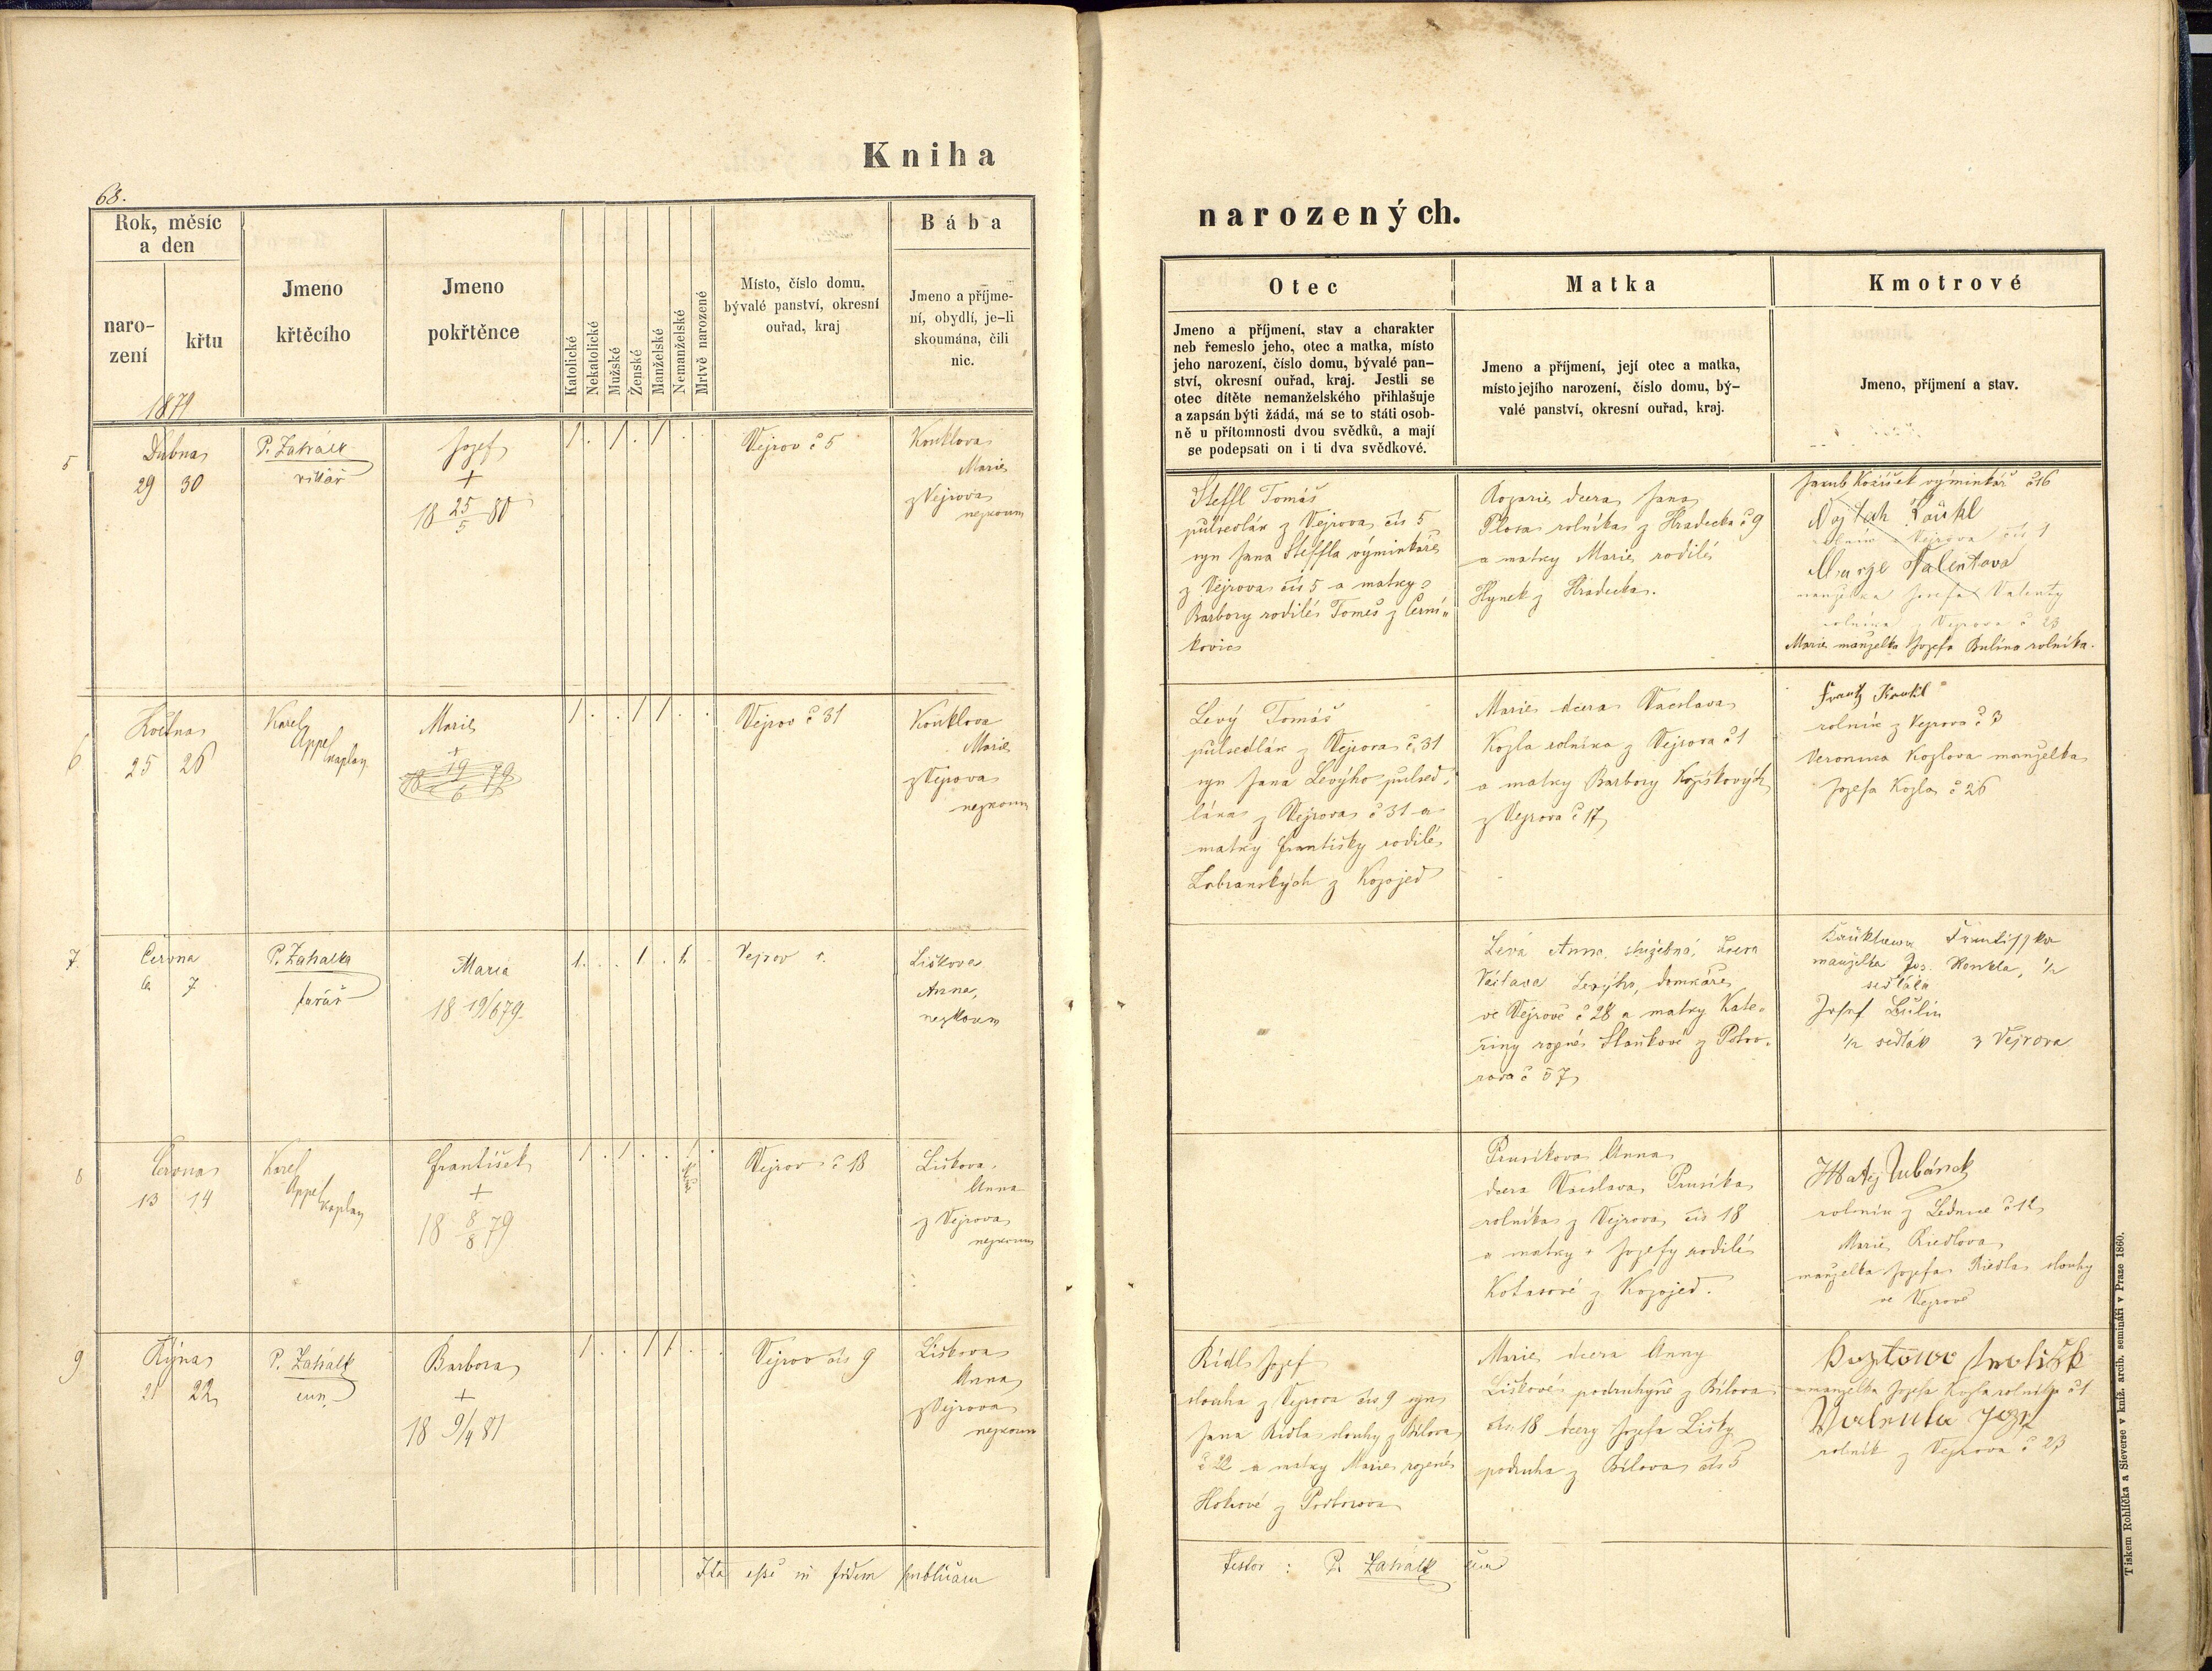 Kniha
narozených.
68.
Rok, měsíc
a den
naro-
zení
křtu
1879
Jmeno
křtěcího
Jmeno
pokřtěnce
Katolické
Nekatolické
Mužské
Ženské
Manželské
Nemanželské
Mrtvě narozené
Místo, číslo domu,
bývalé panství, okresní
ouřad, kraj
Bába
Jmeno a příjme-
ní, obydlí, je-li
skoumána, čili
nic.
Otec
Jmeno a příjmení, stav a charakter
neb řemeslo jeho, otec a matka, místo
jeho narození, číslo domu, bývalé pan-
ství, okresní ouřad, kraj. Jestli se
otec dítěte nemanželského přihlašuje
a zapsán býti žádá, má se to státi osob-
ně u přítomnosti dvou svědků, a mají
se podepsati on i ti dva svědkové.
Matka
Jmeno a příjmení, její otec a matka,
místo jejího narození, číslo domu, bý-
valé panství, okresní ouřad, kraj.
Kmotrové
Jmeno, příjmení a stav.
5
Dubna
29 30
P. Zahálk
Jozef
+
18 25/5 80
1 . 1 . 1 . .
Vejrov č 5
Konklova
Marie
z Vejrova
nezkoum
Steffl Tomáš
půlsedlák z Vejrova čís 5
syn Jana Steffla výminkáře
z Vejrova čís 5 a matky
Barbory rodilé Tomeš z Černi„
kovic
Rozarie dcera Jana
rolníka z Hradecka č 9
a matky Marie rodilé
Hynek z Hradecka.
Jakub Kozíšek výminkář č 16
Marye Valentova
manželka Josefa Valenty
rolníka z Vejrova č 23
Marie manželka Jozefa Bulína rolníka.
6
Května
25 26
Karel
Appel
kaplan
Marie
+
18 19/6 79
1 . . 1 1 . .
Vejrov č 31
Konklova
Marie
z Vejrova
nezkoum
Levý Tomáš
půlsedlák z Vejrova č. 31
syn Jana Levýho půlsed„
láka z Vejrova č 31 a
matky Františky rodilé
z Kozojed
Marie dcera Vacslava
Kozla rolníka z Vejrova č 1
a matky Barbory
z Vejrova č 17
rolník z Vejrova č 3
Veronika Kozlova manželka
Jozefa Kozla č 26
7.
Června
6 7
P. Zahalka
farář
Maria
18 19/6 79.
1. . . 1 . 1. .
Vejrov č.
Liškova
Anna,
nezkoum
Levá Anna, služebná, dcera
Levýho, domkáře
ve Vejrově č 28 a matky Kate„
řiny rozené z
č 57
Františka
manželka Jos. Konkla, 1/2
sedláka
Josef Bulín
1/2 sedlák z Vejrova
8
Června
13 14
Karel
Appel
kaplan
František
+
18 8/8 79
1 . 1 . . 1 .
Vejrov č 18
Liškova
Anna
z Vejrova
nezkoum
Prusíkova Anna
dcera Vacslava Prusíka
rolníka z Vejrova čís 18
a matky + Jozefy rodilé
Kotasové z Kozojed.
Matěj
rolník z Lednice č 12
Marie Riedlova
manželka Jozefa Riedla slouhy
ve Vejrově
9
Října
21 22
P. Zahálk
Barbora
+
18 9/4 81
1 . . 1 1 . .
Vejrov čís 9
Liškova
Anna
z Vejrova
nezkoum
Rídl Jozef
slouha z Vejrova čís 9 syn
Jana Rídla slouhy z Bílova
č 22 a matky Marie rozené
Marie dcera Anny
Liškové podruhyně z Bílova
čís. 18 dcery Jozefa Lišky
podruha z Bílova čís 5
manželka Jozefa Kozla rolníka č 1
Valenta Jozef
rolník z Vejrova č 23
Ita esse in fidem publicam
testor : P. Zahálk
Tiskem Rohlíčka a Sieverse v kníž. arcib. semináři v Praze 1860.